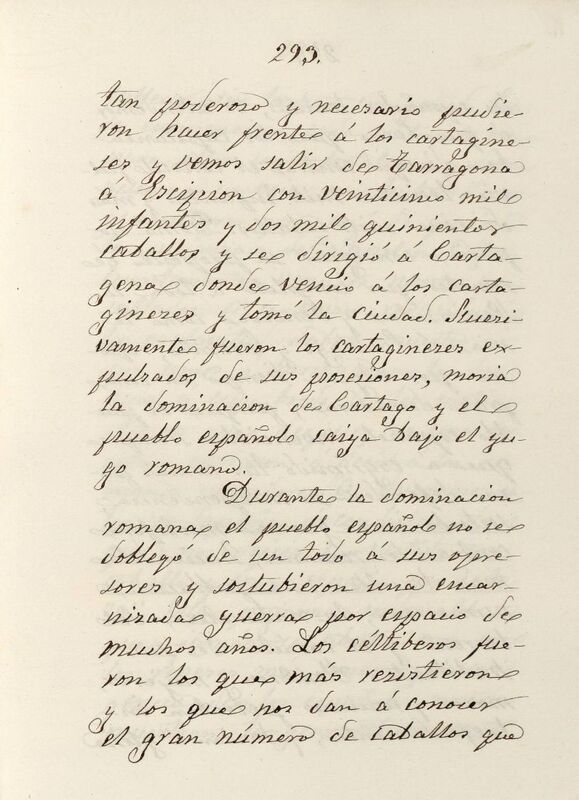 293.
tan poderoso y necesario pudie-
ron hacer frente á los cartagine-
ses y vemos salir de Tarragona
á Escipion con veinticinco mil
infantes y dos mil quinientos
caballos y se dirigió á Carta-
gena donde venció á los carta-
gineses y tomó la ciudad. Sucesi-
vamente fueron los cartagineses ex-
pulsados de sus posesiones, moria
la dominacion de Cartago y el
pueblo español caiya bajo el yu-
go romano.
Durante la dominacion
romana el pueblo español no se
doblegó de un todo á sus opre-
sores y sostubieron una encar-
nizada guerra por espacio de
muchos años. Los céltiberos fue-
ron los que más resistieron
y los que nos dan á conocer
el gran número de caballos que